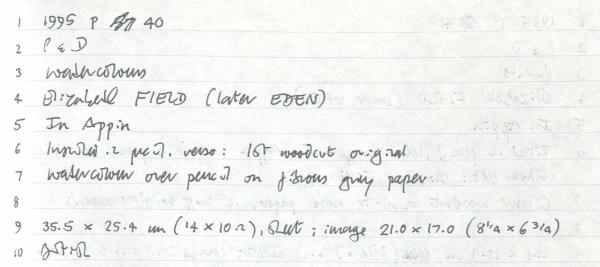 1 1995 P 40
2 P & D
3 watercolours
4 Elizabeth FIELD (later EDEN)
5 In Appin
6 Inscribed in pencil, verso: 1st woodcut original
7 Watercolour over pencil on fibrous grey paper
8
9 35.5 x 25.4 cm (14 x 10.2), sheet; image 21.0 x 17.0 (8 1/4 x 6 3/4)
10